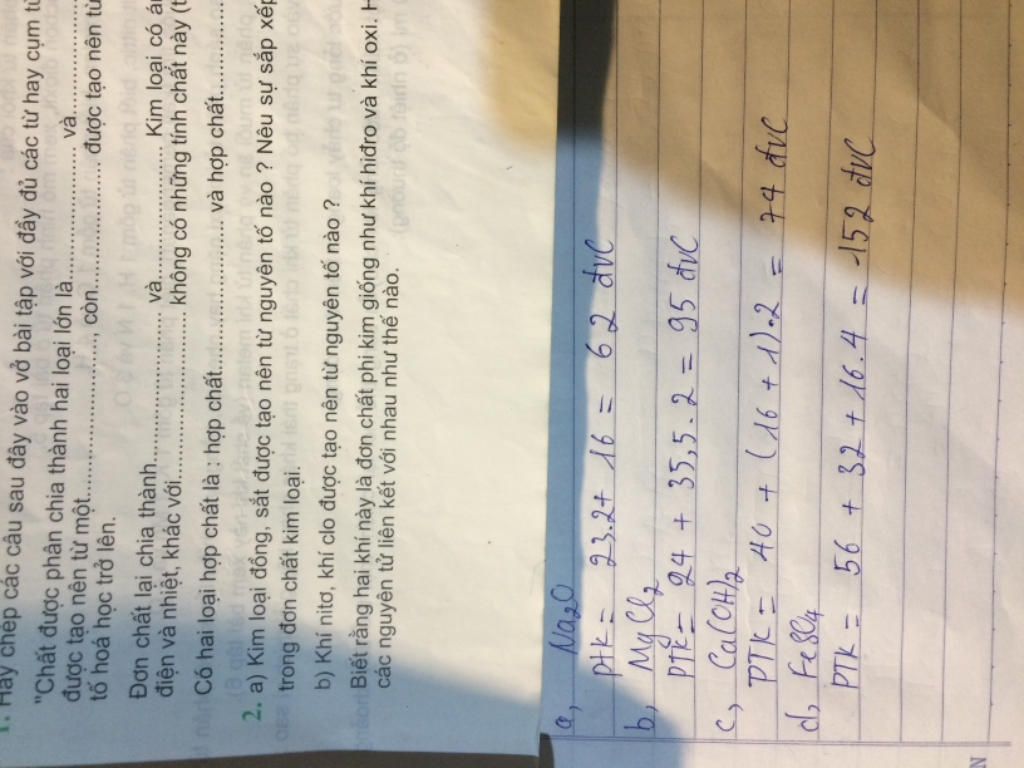 1. Hãy chép các câu sau đây vào vở bài tập với đầy đủ các từ hay cụm từ
"Chất được phân chia thành hai loại lớn là.................... và...............
được tạo nên từ một...................., còn.................... được tạo nên từ
tố hoá học trở lên.
Đơn chất lại chia thành.................... và.................... Kim loại có
điện và nhiệt, khác với.................... không có những tính chất này
Có hai loại hợp chất là : hợp chất.................... và hợp chất....................
2. a) Kim loại đồng, sắt được tạo nên từ nguyên tố nào ? Nêu sự sắp xếp
trong đơn chất kim loại.
b) Khí nitơ, khí clo được tạo nên từ nguyên tố nào ?
Biết rằng hai khí này là đơn chất phi kim giống như khí hiđro và khí oxi.
các nguyên tử liên kết với nhau như thế nào.
a, Na2O
PTK = 23.2 + 16 = 62 đvC
b, MgCl2
PTK = 24 + 35,5.2 = 95 đvC
c, Ca(OH)2
PTK = 40 + (16 + 1).2 = 74 đvC
d, FeSO4
PTK = 56 + 32 + 16.4 = 152 đvC
N